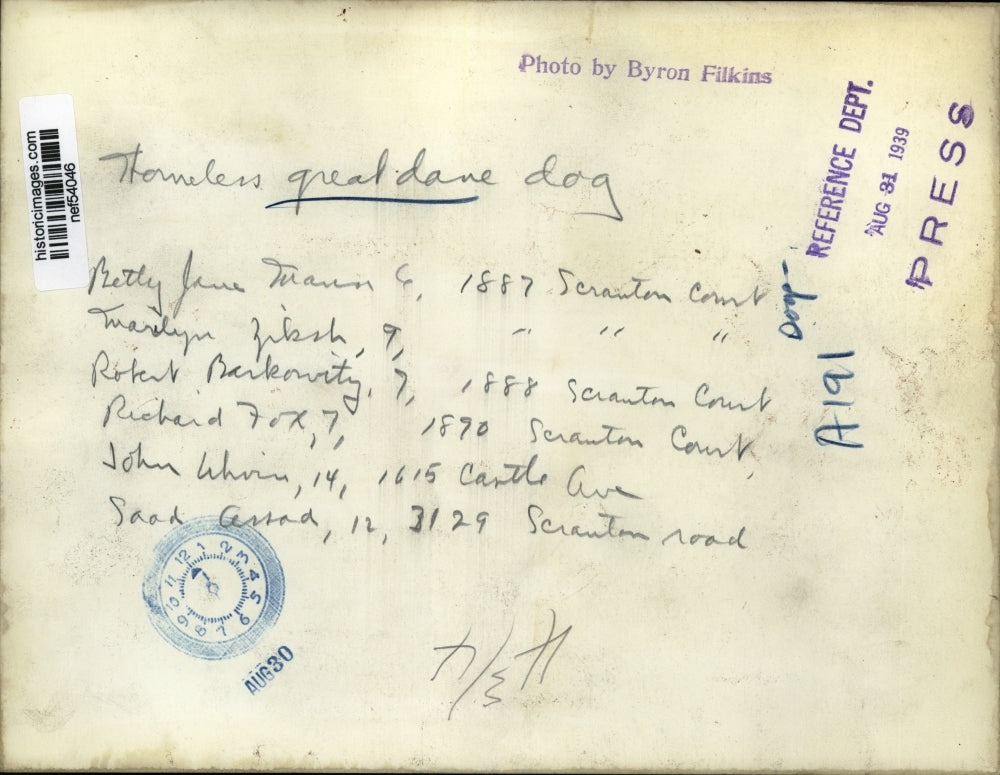 Photo by Byron Filkins
REFERENCE DEPT.
AUG 31 1939
PRESS
historicimages.com
nef54046
Homeless great dane dog
Betty Jane 6, 1887 Scranton Court
Marilyn 9, " " "
Robert Berkowitz, 7, 1888 Scranton Court
Richard Fox, 7, 1890 Scranton Court,
John 14, 1615 Castle Ave
Saad Assad, 12, 3129 Scranton road
Dogs-
A191
12 1 2 3 4 5 6 7 8 9 10 11
AUG 30